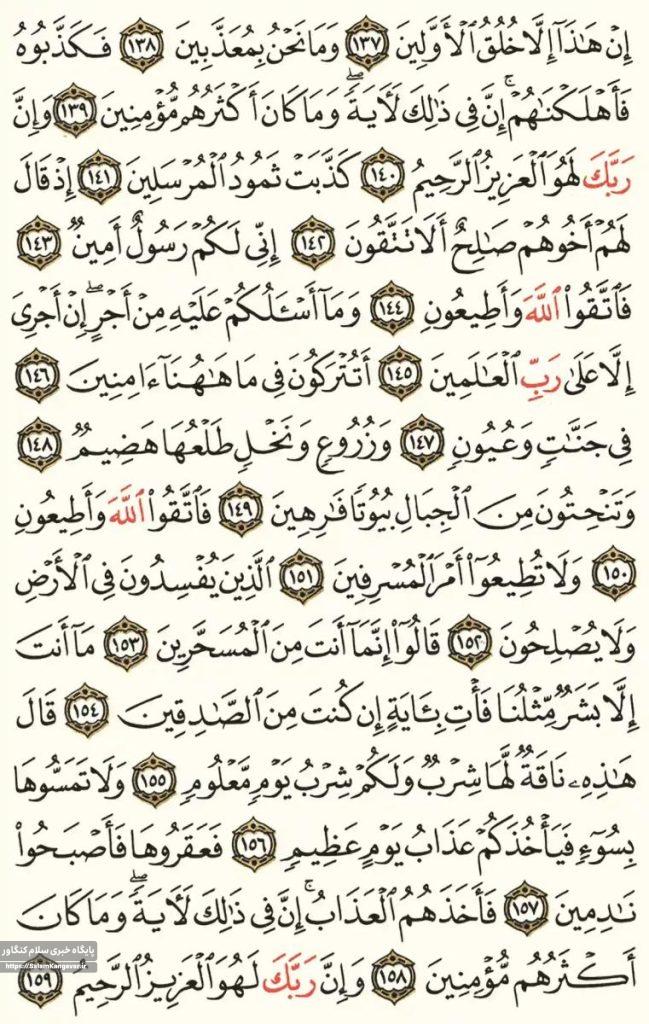 إِنْ هَٰذَآ إِلَّا خُلُقُ ٱلْأَوَّلِينَ ١٣٧ وَمَا نَحْنُ بِمُعَذَّبِينَ ١٣٨ فَكَذَّبُوهُ
فَأَهْلَكْنَٰهُمْ ۚ إِنَّ فِى ذَٰلِكَ لَأٓيَةً ۖ وَمَا كَانَ أَكْثَرُهُم مُّؤْمِنِينَ ١٣٩ وَإِنَّ
رَبَّكَ لَهُوَ ٱلْعَزِيزُ ٱلرَّحِيمُ ١٤٠ كَذَّبَتْ ثَمُودُ ٱلْمُرْسَلِينَ ١٤١ إِذْ قَالَ
لَهُمْ أَخُوهُمْ صَٰلِحٌ أَلَا تَتَّقُونَ ١٤٢ إِنِّى لَكُمْ رَسُولٌ أَمِينٌ ١٤٣
فَٱتَّقُوا۟ ٱللَّهَ وَأَطِيعُونِ ١٤٤ وَمَآ أَسْـَٔلُكُمْ عَلَيْهِ مِنْ أَجْرٍ ۖ إِنْ أَجْرِىَ
إِلَّا عَلَىٰ رَبِّ ٱلْعَٰلَمِينَ ١٤٥ أَتُتْرَكُونَ فِى مَا هَٰهُنَآ ءَامِنِينَ ١٤٦
فِى جَنَّٰتٍ وَعُيُونٍ ١٤٧ وَزُرُوعٍ وَنَخْلٍ طَلْعُهَا هَضِيمٌ ١٤٨
وَتَنْحِتُونَ مِنَ ٱلْجِبَالِ بُيُوتًا فَٰرِهِينَ ١٤٩ فَٱتَّقُوا۟ ٱللَّهَ وَأَطِيعُونِ
١٥٠ وَلَا تُطِيعُوٓا۟ أَمْرَ ٱلْمُسْرِفِينَ ١٥١ ٱلَّذِينَ يُفْسِدُونَ فِى ٱلْأَرْضِ
وَلَا يُصْلِحُونَ ١٥٢ قَالُوٓا۟ إِنَّمَآ أَنتَ مِنَ ٱلْمُسَحَّرِينَ ١٥٣ مَآ أَنتَ
إِلَّا بَشَرٌ مِّثْلُنَا فَأْتِ بِـَٔايَةٍ إِن كُنتَ مِنَ ٱلصَّٰدِقِينَ ١٥٤ قَالَ
هَٰذِهِۦ نَاقَةٌ لَّهَا شِرْبٌ وَلَكُمْ شِرْبُ يَوْمٍ مَّعْلُومٍ ١٥٥ وَلَا تَمَسُّوهَا
بِسُوٓءٍ فَيَأْخُذَكُمْ عَذَابُ يَوْمٍ عَظِيمٍ ١٥٦ فَعَقَرُوهَا فَأَصْبَحُوا۟
نَٰدِمِينَ ١٥٧ فَأَخَذَهُمُ ٱلْعَذَابُ ۚ إِنَّ فِى ذَٰلِكَ لَأٓيَةً ۖ وَمَا كَانَ
أَكْثَرُهُم مُّؤْمِنِينَ ١٥٨ وَإِنَّ رَبَّكَ لَهُوَ ٱلْعَزِيزُ ٱلرَّحِيمُ ١٥٩
پایگاه خبری سلام کنگاور
https://SalamKangavar.ir